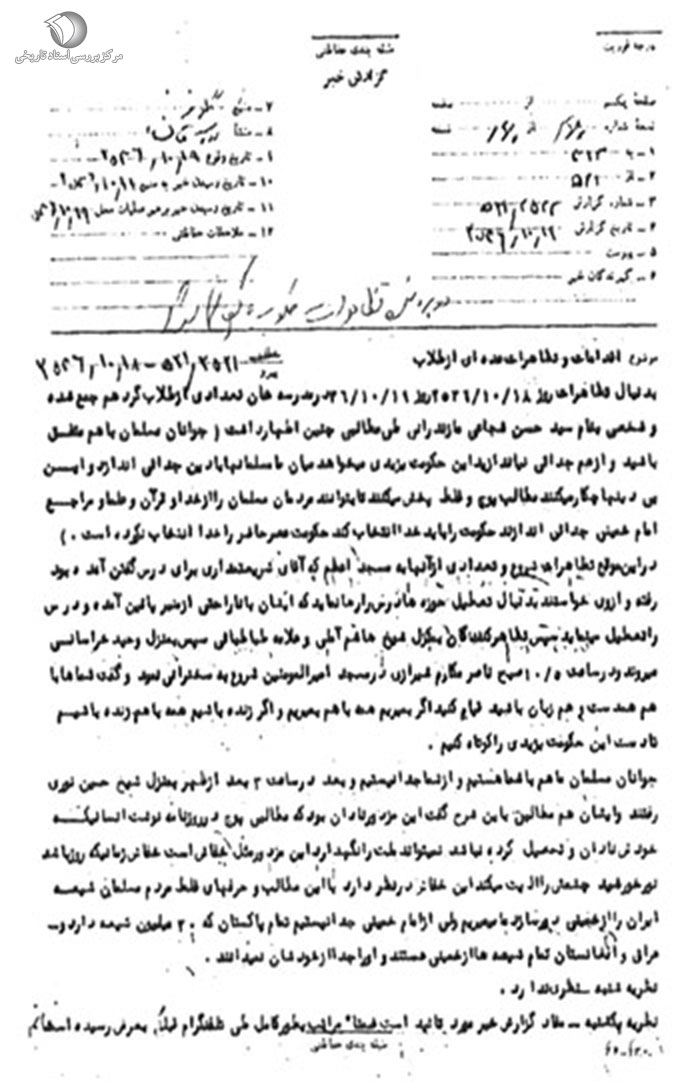 مرکز بررسی اسناد تاریخی
درجه فوریت
طبقه بندی حفاظتی
گزارش خبر
صفحه یکم از صفحه
نسخه شماره از نسخه
۱ - به ۳۲۳
۲ - از ۵۲۱
۳ - شماره گزارش
۴ - تاریخ گزارش
۵ - پیوست
۶ - گیرندگان خبر
۷ - منبع
۸ - منشأ
۹ - تاریخ وقوع
۱۰ - تاریخ رسیدن خبر به منبع
۱۱ - تاریخ رسیدن خبر به رهبر عملیات محل
۱۲ - ملاحظات حفاظتی
موضوع اقدامات و تظاهرات عده ای از طلاب
بدنبال تظاهرات روز ۲۵۳۶/۱۰/۱۸ روز ۳۶/۱۰/۱۹ در مدرسه خان تعدادی از طلاب گرد هم جمع شده
و شخصی بنام سید حسن شجاعی مازندرانی طی مطالبی چنین اظهار داشت ( جوانان مسلمان با هم متفق
باشید و از هم جدائی نیاندازید این حکومت یزیدی میخواهد میان ما مسلمانها با دین جدائی اندازد و ایــن
بی دینها چکار میکنند مطالب پوچ و غلط پخش میکنند تا بتوانند مردمان مسلمان را از خدا و قرآن و علما و مراجــع
امام خمینی جدائی اندازند حکومت را باید خدا انتخاب کند حکومت عصر حاضر را خدا انتخاب نکرده است . )
در این موقع تظاهرات شروع و تعدادی از آنها به مسجد اعظم که آقای شریعتمداری برای درس گفتن آمده بود
رفته و از وی خواستند بدنبال تعطیل حوزه ها درس را رها نماید که ایشان با ناراحتی از منبر پائین آمده و درس
را تعطیل مینماید سپس تظاهرکنندگان بمنزل شیخ هاشم آملی و علامه طباطبائی سپس بمنزل وحید خراسانی
میروند و در ساعت ۱۰/۵ صبح ناصر مکارم شیرازی در مسجد امیرالمومنین شروع به سخنرانی نمود و گفت شماها با
هم همدست و هم زبان باشید قیام کنید اگر بمیریم همه با هم بمیریم و اگر زنده باشیم همه با هم زنده باشیــم
تا دست این حکومت یزیدی را کوتاه کنیم .
جوانان مسلمان ما هم با شما هستیم و از شما جدا نیستیم و بعد در ساعت ۳ بعد از ظهر بمنزل شیخ حسین نوری
رفتند و ایشان هم مطالبی باین شرح گفت این مزدور نادان بود که مطالبی پوچ در روزنامه نوشت انسانیکــه
خودش نادان و تحصیل کرده نباشد نمیتواند ملت را نگهدارد این مزدور مثل خفاش است خفاش زمانیکه روز باشد
نور خورشید چشمش را اذیت میکند این خفاش در نظر دارد با این مطالب و حرفهای غلط مردم مسلمان شیعــه
ایران را از خمینی دور سازد ما میمیریم ولی از امام خمینی جدا نیستیم تمام پاکستان که ۳۰ میلیون شیعه دارد و ـ
عراق و افغانستان تمام شیعه ها از خمینی هستند و او را جدا از خودشان نمیدانند .
نظریه شنبه ـ نظری ندارد .
نظریه یکشنبه ـ مفاد گزارش خبر مورد تائید است ضمنا" مراتب بطور کامل طی تلفنگرام قبلا" بعرض رسیده است
طبقه بندی حفاظتی